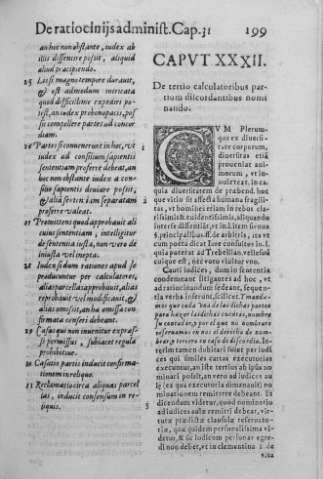 De ratiociniis administ. Cap. 31 199
an hoc non obstante, iudex ab
illis dissentire possit, aliquid
aliud præcipiendo.
25 Lis si magno tempore durauit,
& est admodum intricata
quod difficillime expediri po-
test, an iudex pro bono pacis, pos-
sit compellere partes ad concor
diam.
26 Partes si conuenerunt in hoc, vt
iudex ad consilium sapientis
sententiam proferre debeat, an
hoc non obstante iudex a con-
silio sapientis deuiare possit,
& aliã sententiam separatam
proferre valeat.
27 Promittens quod approbauit ali
cuius sententiam, intelligitur
de sententia iusta, non vero de
iniusta vel inepta.
28 Index si dum rationes apud se
producuntur per calculatores,
alias parcellas approbauit, alias
reprobauit vel modificauit, &
alias omisit, an hæ omissæ con-
firmatæ censeri debeant.
29 Casus qui non inuenitur expres-
se permissus, subiacet regula
prohibitiuæ.
30 Casatio partis inducit confirma-
tionem in reliquo.
31 Reclamatio circa aliquas parcel
las, inducit consensum in re-
liquis.
CAPVT XXXII.
De tertio calculatoribus par-
tium discordantibus nomi
nando.
CVM Plerun-
que ex diuersi-
tate corporum,
diuersitas etiã
proueniat ani-
morum, et in-
voluntate
quia diuersitatem
que vitio se affecta humana fragili-
tas, vt homines etiam in rebus cla-
rissimis & euidentissimis, aliquando
inter se dissentiãt,
§. principalibus. ff. de arbitris, ita vt
cum poeta dicat
quia poterat ad Trebatium
alique est, quot
Cauti iudices, dum in sententia
condemnant litigantes ad hoc, vt
ad ratiocinandum sedeant, sequen-
tia verba inserunt, scilicet, Y manda-
mos que cada vna de las dichas partes
para hazer las dichas cuentas, nombre
su contador, y por el que no nombrare
se nombre
brar, y tercero en caso de discordia. In-
terim tamen dubitari solet per iudi-
ces qui similes cartas executorias
executant, an iste tertius ab ipso no-
minari possit, an vero ad iudices
a quo) ex qua executoria dimanauit) no
minationem remittere debeant. Et
dicendum videtur, quod nominatio
ad iudices remitti debeat, vir-
tute prædictæ clausulæ reseruato-
riæ, quæ quidem personalissima vi-
detur, & sic iudicum personas egre-
di non debet, vt in clementina